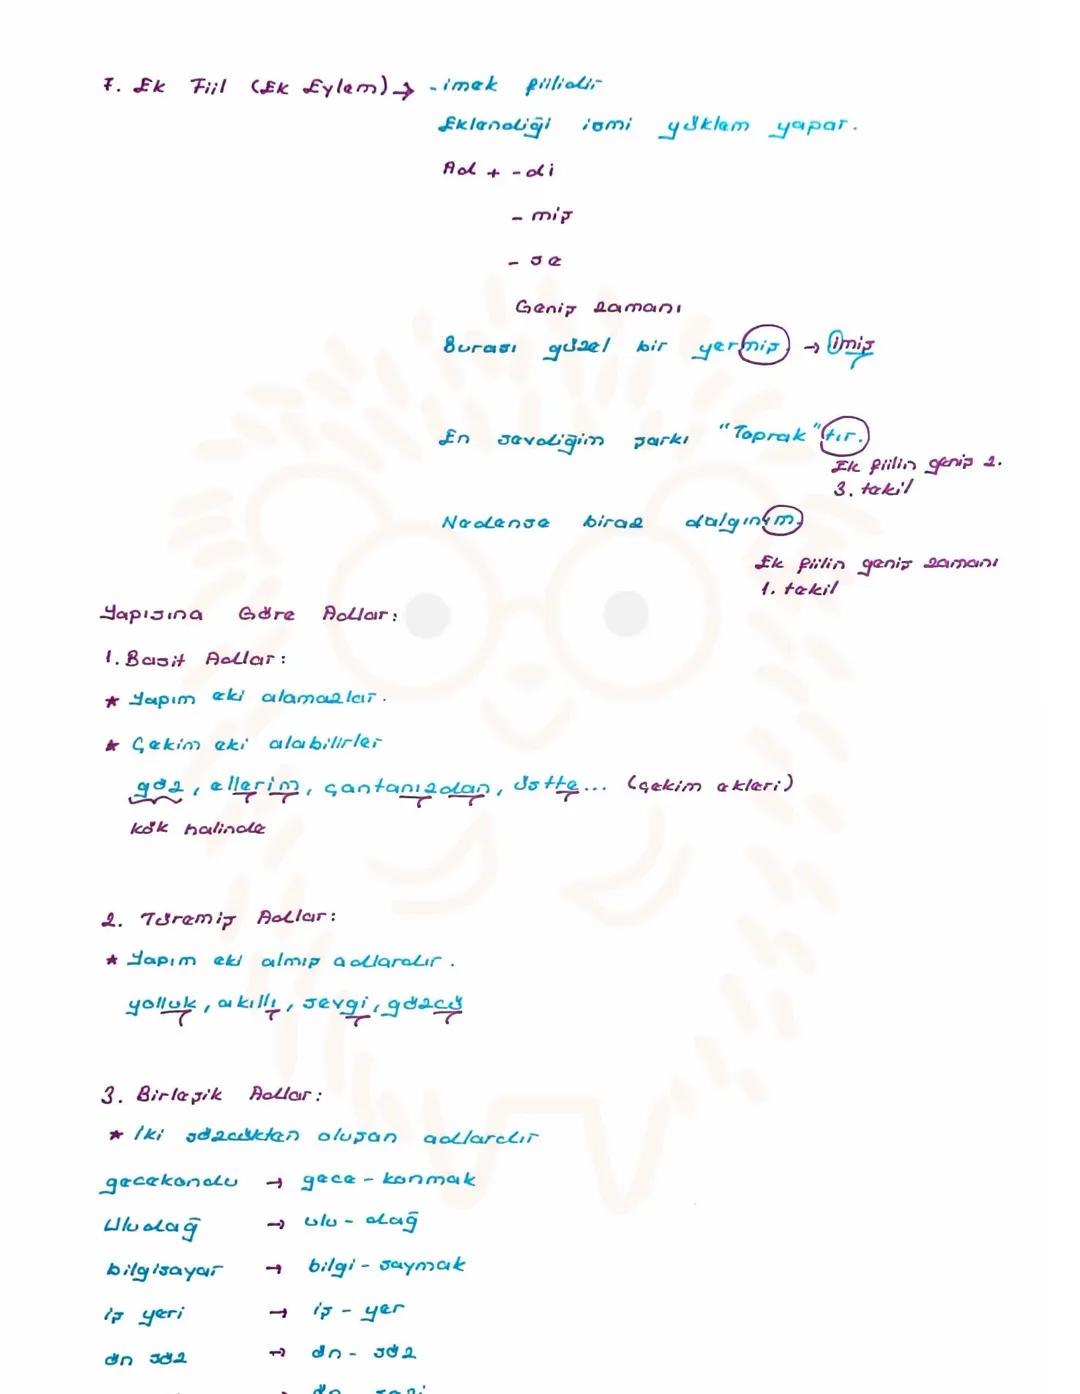 7. Ek Fiil (Ek Eylem) → -imek fiilidir
Eklendiği ismi yüklem yapar.
Ad + -di
- miş
- se
Geniş zamanı
Burası güzel bir yermiş → imiş
En sevdiğim şarkı "Toprak"tır.
Ek fiilin geniş z.
3. tekil
Nedense biraz dalgınım.
Ek fiilin geniş zamanı
1. tekil
Yapısına Göre Adlar:
1. Basit Adlar:
★ Yapım eki alamazlar.
★ Çekim eki alabilirler
göz, ellerim, çantanızdan, üstte... (çekim ekleri)
kök halinde
2. Türemiş Adlar:
★ Yapım eki almış adlardır.
yolluk, akıllı, sevgi, gözcü
3. Birleşik Adlar:
★ İki sözcükten oluşan adlardır
gecekondu → gece - konmak
Uludağ → ulu - dağ
bilgisayar → bilgi - saymak
iş yeri → iş - yer
ön söz → ön - söz